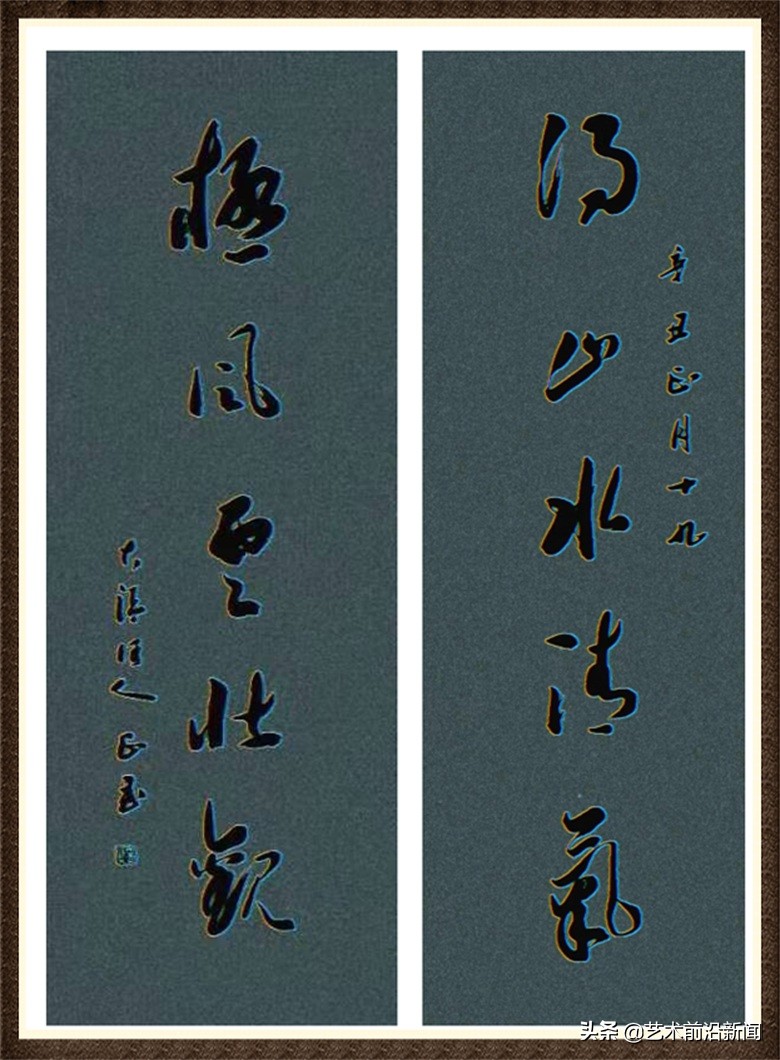 得山水清气
辛丑正月十九
极风云壮观
大泽佳人 正玉
头条 @艺术前沿新闻